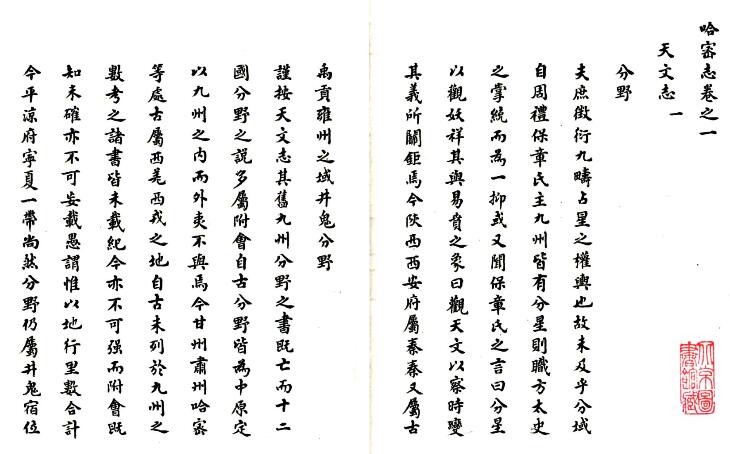 哈密志卷之一
天文志一
分野
夫庶徵衍九疇占星之權輿也故未及乎分域
自周禮保章氏主九州皆有分星則職方太史
之掌統而為一抑或又聞保章氏之言曰分星
以觀妖祥其與易賁之象曰觀天文以察時變
其義所關鉅焉今陝西西安府屬秦秦又屬古
禹貢雍州之域井鬼分野
謹按天文志其舊九州分野之書既亡而十二
國分野之說多屬附會自古分野皆為中原定
以九州之内而外夷不與焉今甘州肅州哈密
等處古屬西羌西戎之地自古未列於九州之
數考之諸書皆未載紀今亦不可强而附會既
知未確亦不可妄載愚謂惟以地行里數合計
今平涼府寧夏一帶尚然分野仍屬井鬼宿位